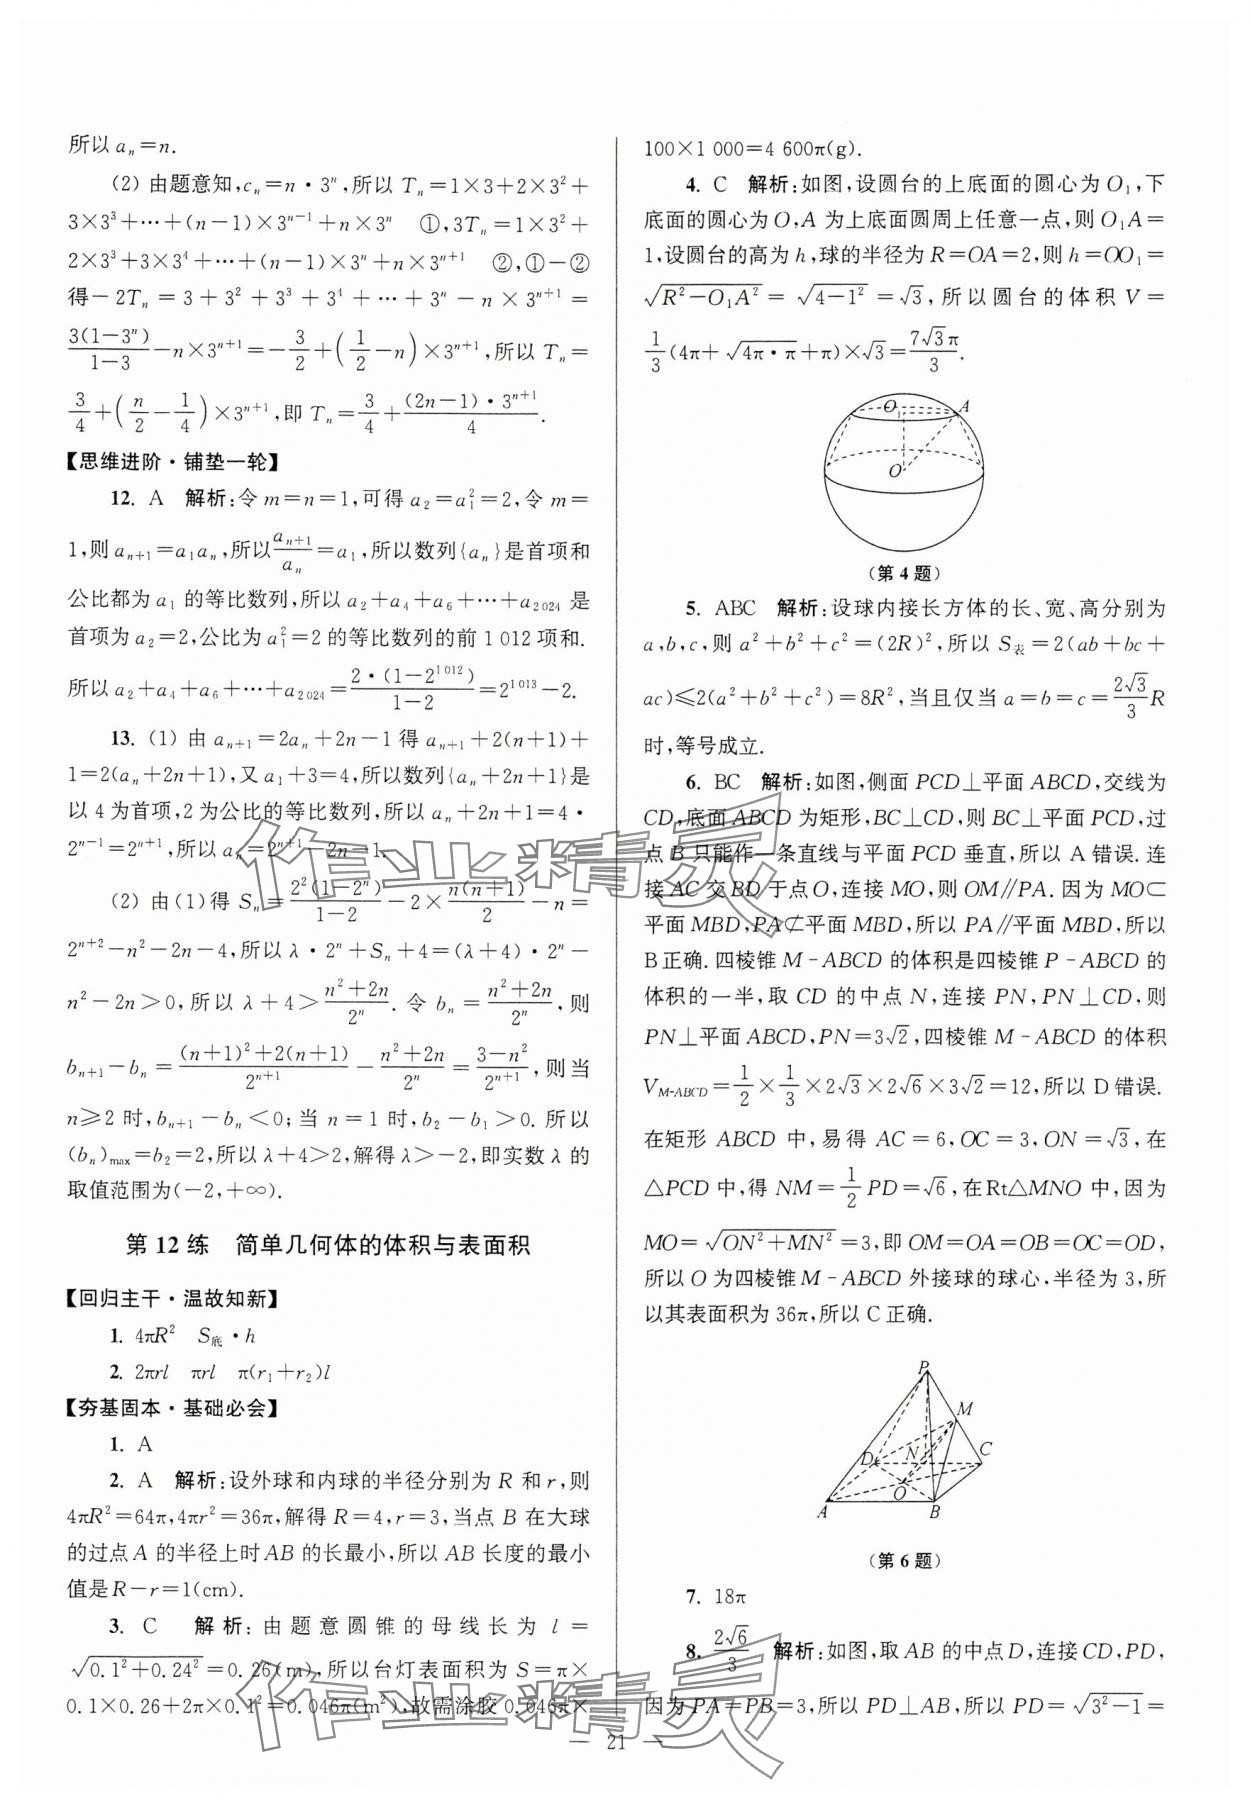 所以 aₙ=n.
(2) 由题意知,cₙ=n·3ⁿ,所以 Tₙ=1×3+2×3²+
3×3³+…+(n-1)×3ⁿ⁻¹+n×3ⁿ ①,3Tₙ=1×3²+
2×3³+3×3⁴+…+(n-1)×3ⁿ+n×3ⁿ⁺¹ ②,①-②
得-2Tₙ=3+3²+3³+3⁴+…+3ⁿ-n×3ⁿ⁺¹=
3(1-3ⁿ)/(1-3)-n×3ⁿ⁺¹=-3/2+(1/2-n)×3ⁿ⁺¹,所以 Tₙ=
3/4+(n/2-1/4)×3ⁿ⁺¹,即 Tₙ=3/4+(2n-1)·3ⁿ⁺¹/4.
【思维进阶·铺垫一轮】
12. A 解析:令 m=n=1,可得 a₂=a₁²=2,令 m=
1,则 aₙ₊₁=a₁aₙ,所以aₙ₊₁/aₙ=a₁,所以数列{aₙ}是首项和
公比都为 a₁ 的等比数列,所以 a₂+a₄+a₆+…+a₂₀₂₄ 是
首项为 a₂=2,公比为 a₁²=2 的等比数列的前 1 012 项和.
所以 a₂+a₄+a₆+…+a₂₀₂₄=2·(1-2¹⁰¹²)/(1-2)=2¹⁰¹³-2.
13. (1) 由 aₙ₊₁=2aₙ+2n-1 得 aₙ₊₁+2(n+1)+
1=2(aₙ+2n+1),又 a₁+3=4,所以数列{aₙ+2n+1}是
以 4 为首项,2 为公比的等比数列,所以 aₙ+2n+1=4·
2ⁿ⁻¹=2ⁿ⁺¹,所以 aₙ=2ⁿ⁺¹-2n-1.
(2) 由(1)得 Sₙ=2²(1-2ⁿ)/(1-2)-2×n(n+1)/2-n=
2ⁿ⁺²-n²-2n-4,所以 λ·2ⁿ+Sₙ+4=(λ+4)·2ⁿ-
n²-2n>0,所以 λ+4>(n²+2n)/2ⁿ.令 bₙ=(n²+2n)/2ⁿ,则
bₙ₊₁-bₙ=((n+1)²+2(n+1))/2ⁿ⁺¹-(n²+2n)/2ⁿ=(3-n²)/2ⁿ⁺¹,则当
n≥2 时,bₙ₊₁-bₙ<0;当 n=1 时,b₂-b₁>0.所以
(bₙ)max=b₂=2,所以 λ+4>2,解得 λ>-2,即实数 λ 的
取值范围为(-2,+∞).
第 12 练 简单几何体的体积与表面积
【回归主干·温故知新】
1. 4πR² S底·h
2. 2πrl πrl π(r₁+r₂)l
【夯基固本·基础必会】
1. A
2. A 解析:设外球和内球的半径分别为 R 和 r,则
4πR²=64π,4πr²=36π,解得 R=4,r=3,当点 B 在大球
的过点 A 的半径上时 AB 的长最小,所以 AB 长度的最小
值是 R-r=1(cm).
3. C 解析:由题意圆锥的母线长为 l=
√(0.1²+0.24²)=0.26(m),所以台灯表面积为 S=π×
0.1×0.26+2π×0.1²=0.046π(m²),故需涂胶 0.046π×
100×1 000=4 600π(g).
4. C 解析:如图,设圆台的上底面的圆心为 O₁,下
底面的圆心为 O,A 为上底面圆周上任意一点,则 O₁A=
1,设圆台的高为 h,球的半径为 R=OA=2,则 h=OO₁=
√(R²-O₁A²)=√(4-1²)=√3,所以圆台的体积 V=
1/3(4π+√(4π·π)+π)×√3=7√3π/3.
O₁ A
O
(第 4 题)
5. ABC 解析:设球内接长方体的长、宽、高分别为
a,b,c,则 a²+b²+c²=(2R)²,所以 S表=2(ab+bc+
ac)≤2(a²+b²+c²)=8R²,当且仅当 a=b=c=2√3/3R
时,等号成立.
6. BC 解析:如图,侧面 PCD⊥平面 ABCD,交线为
CD,底面 ABCD 为矩形,BC⊥CD,则 BC⊥平面 PCD,过
点 B 只能作一条直线与平面 PCD 垂直,所以 A 错误.连
接 AC 交 BD 于点 O,连接 MO,则 OM∥PA.因为 MO⊂
平面 MBD,PA⊄平面 MBD,所以 PA∥平面 MBD,所以
B 正确.四棱锥 M-ABCD 的体积是四棱锥 P-ABCD 的
体积的一半,取 CD 的中点 N,连接 PN,PN⊥CD,则
PN⊥平面 ABCD,PN=3√2,四棱锥 M-ABCD 的体积
V_{M-ABCD}=1/2×1/3×2√3×2√6×3√2=12,所以 D 错误.
在矩形 ABCD 中,易得 AC=6,OC=3,ON=√3,在
△PCD 中,得 NM=1/2PD=√6,在Rt△MNO 中,因为
MO=√(ON²+MN²)=3,即 OM=OA=OB=OC=OD,
所以 O 为四棱锥 M-ABCD 外接球的球心.半径为 3,所
以其表面积为 36π,所以 C 正确.
P
M
D N C
O
A B
(第 6 题)
7. 18π
8. 2√6/3 解析:如图,取 AB 的中点 D,连接 CD,PD,
因为 PA=PB=3,所以 PD⊥AB,所以 PD=√(3²-1)=
— 21 —
作业精灵
作业精灵